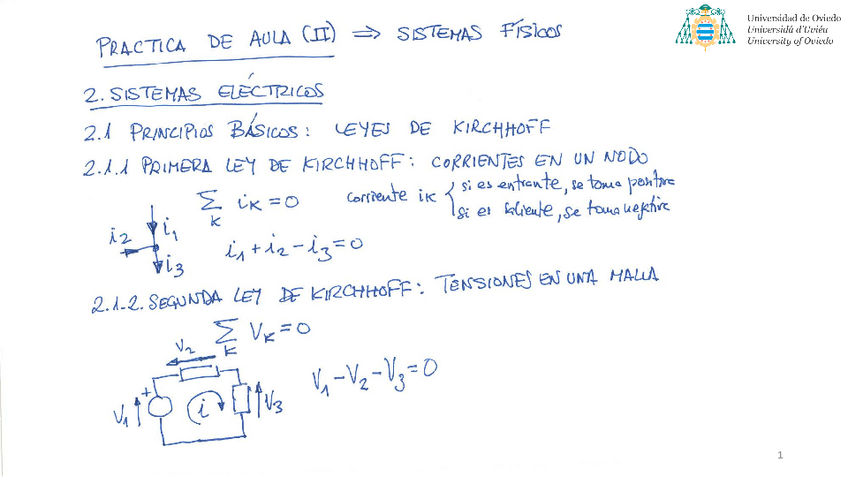 PRACTICA DE AULA (II) ⇒ SISTEMAS FÍSICOS
Universidad de Oviedo
Universidá d'Uviéu
University of Oviedo
2. SISTEMAS ELÉCTRICOS
2.1 PRINCIPIOS BÁSICOS: LEYES DE KIRCHHOFF
2.1.1 PRIMERA LEY DE KIRCHHOFF: CORRIENTES EN UN NODO
∑ iK = 0
K
corriente iK { si es entrante, se toma positiva
si es saliente, se toma negativa
i1
i2
i3
i1 + i2 - i3 = 0
2.1-2. SEGUNDA LEY DE KIRCHHOFF: TENSIONES EN UNA MALLA
∑ VK = 0
K
V2
V1
+
i
V3
V1 - V2 - V3 = 0
1